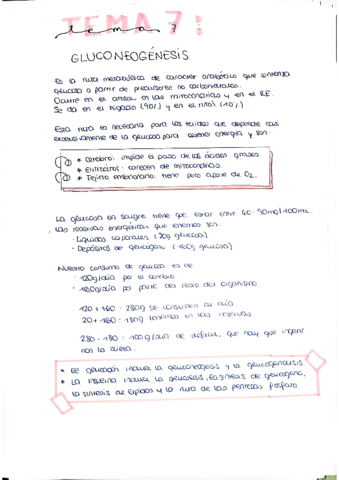 TEMA 7:
tema 7
GLUCONEOGÉNESIS
Es la ruta metabólica de carácter anabólico que sintetiza
glucosa a partir de precursores no carbohidratos.
Ocurre en el citosol, en las mitocondrias y en el RE.
Se da en el hígado (90%) y en el riñón (10%)
Esta ruta es necesaria para los tejidos que dependen casi
exclusivamente de la glucosa para obtener energía y son:
* Cerebro: impide el paso de los ácidos grasos.
* Eritrocitos: carecen de mitocondrias.
* Tejido embrionario: tiene poco aporte de O2.
La glucosa en sangre tiene que estar entre 60-90mg/100mL.
Las reservas energéticas que tenemos son:
- Líquidos corporales (20g glucosa)
- Depósitos de glucógeno (160g glucosa)
Nuestro consumo de glucosa es de:
- 120g/día por el cerebro.
- 160g/día por parte del resto del organismo.
120 + 160 = 280g se consumen al día
20 + 160 = 180g tenemos en las reservas
280 - 180 = 100g/día de déficit, que hay que ingerir
con la dieta.
* El glucagón induce la gluconeogénesis y la glucogenolisis
* La insulina induce la glucolisis, la síntesis de glucógeno,
la síntesis de lípidos y la ruta de las pentosas fosfato.